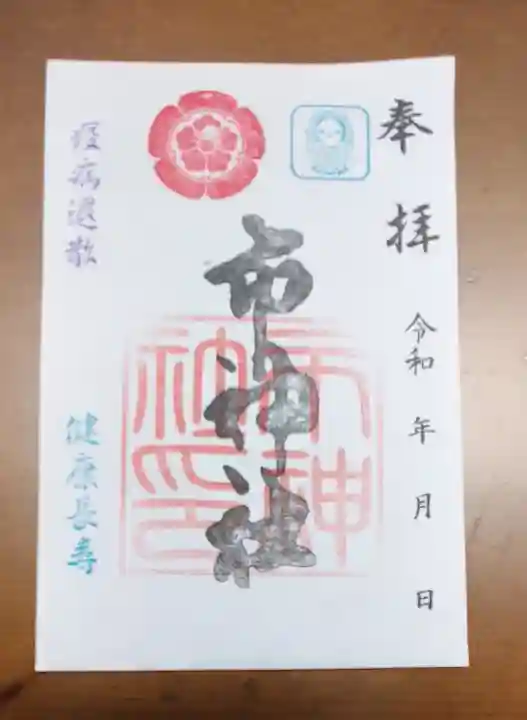 奉拝
令和 年 月 日
市神社
市神社印
疫病退散
健康長寿